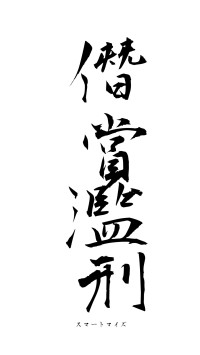 僭賞濫刑
スマートマイズ